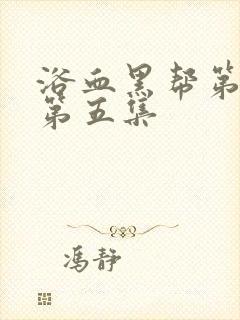 浴血黑帮第
第五集
冯静